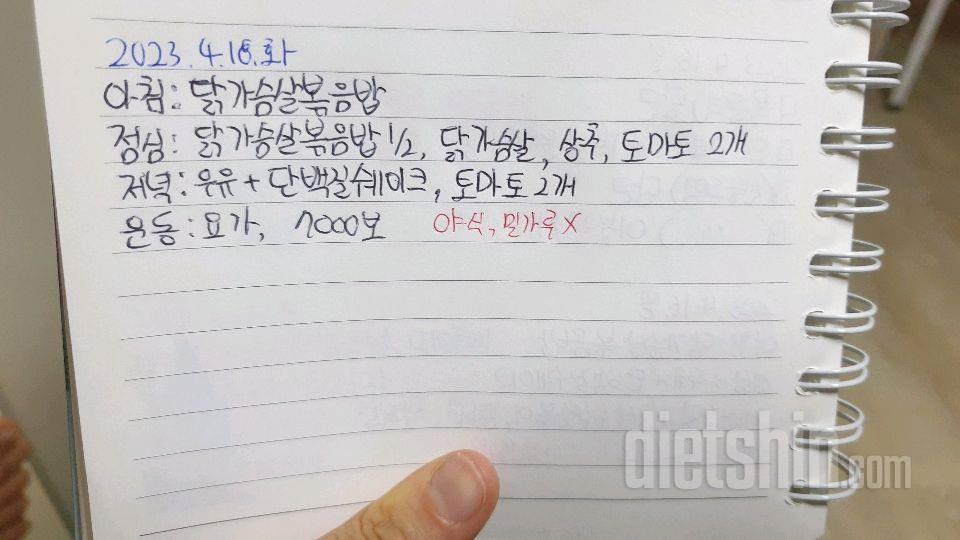 2023.4.18.화
아침: 닭가슴살볶음밥
점심: 닭가슴살볶음밥 1/2, 닭가슴살, 상추, 토마토 2개
저녁: 우유 + 단백질쉐이크, 토마토 2개
운동: 요가, 7000보 야식, 밀가루 X
dietshin.com